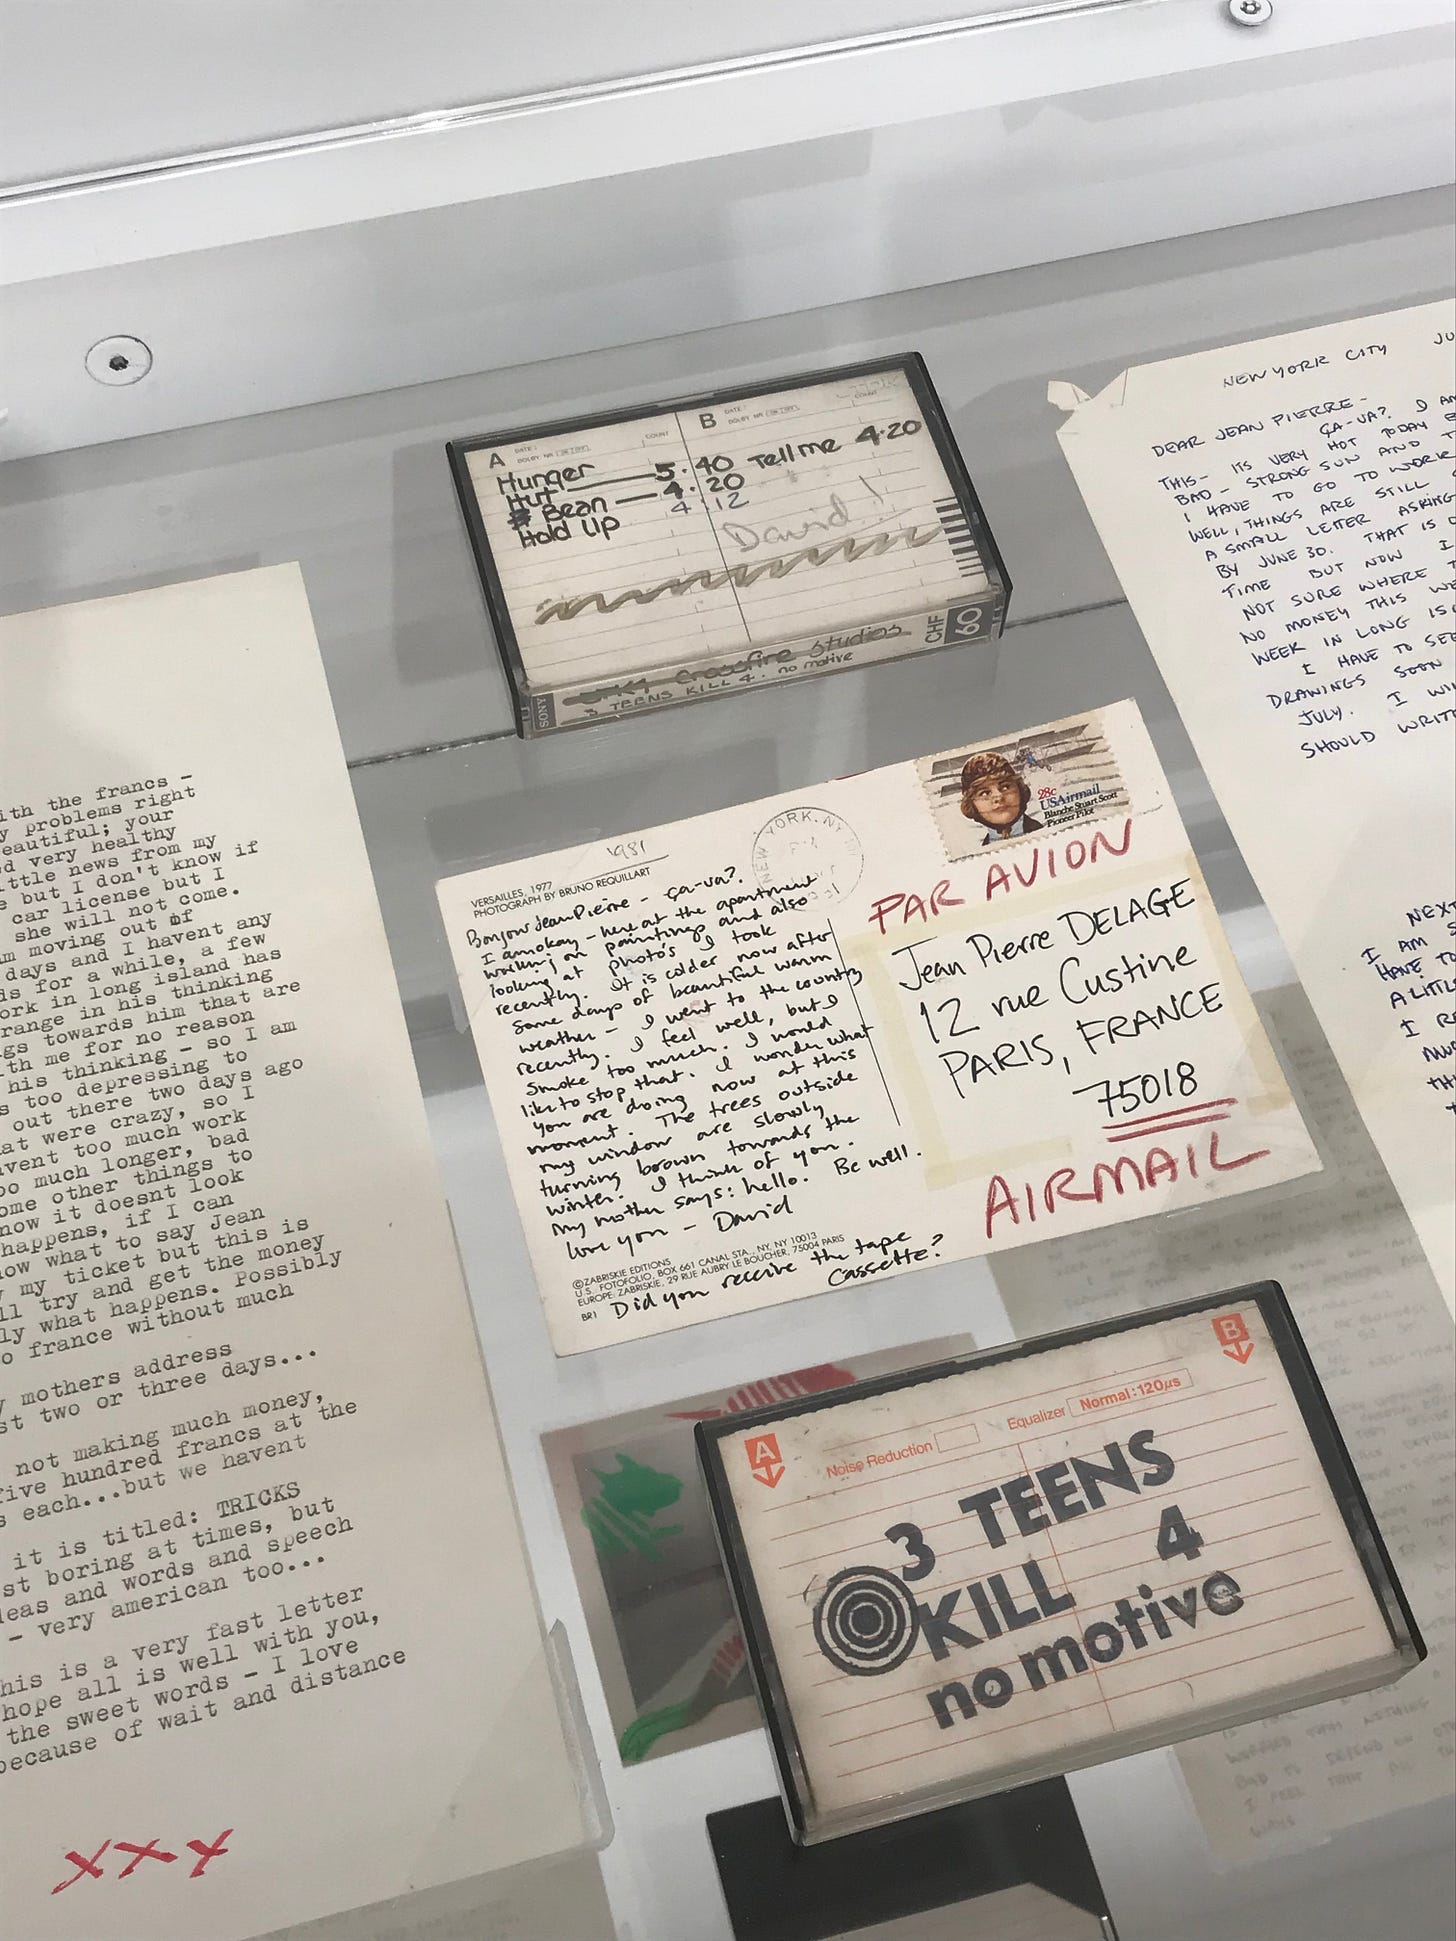 ith the francs -
y problems right
eautiful; your
ed very healthy
ittle news from my
e but I don't know if
car license but I
she will not come.
m moving out of
days and I havent any
ds for a while, a few
ork in long island has
range in his thinking
gs towards him that are
ith me for no reason
his thinking - so I am
s too depressing to
out there two days ago
hat were crazy, so I
avent too much work
oo much longer, bad
ome other things to
now it doesnt look
happens, if I can
ow what to say Jean
y my ticket but this is
ll try and get the money
ly what happens. Possibly
o france without much
y mothers address
st two or three days...
not making much money,
five hundred francs at the
s each...but we havent
it is titled: TRICKS
st boring at times, but
deas and words and speech
- very american too...
his is a very fast letter
hope all is well with you,
the sweet words - I love
because of wait and distance
xxx
A DATE: COUNT
DOLBY NR
B DATE: COUNT
DOLBY NR
Hunger 5.40
Hut 4.20
Bean 4.12
Hold Up
Tell me 4.20
David!
Crossfire Studios
3 TEENS KILL 4. no motive
SONY
CHF 60
1981
VERSAILLES, 1977
PHOTOGRAPH BY BRUNO REQUILLART
Bonjour Jean Pierre - ça-va?
I am okay - here at the apartment
working on paintings and also
looking at photo's I took
recently. It is colder now after
some days of beautiful warm
weather - I went to the country
recently. I feel well, but I
smoke too much. I would
like to stop that. I wonder what
you are doing now at this
moment. The trees outside
my window are slowly
turning brown towards the
winter. I think of you.
My mother says: hello. Be well.
love you - David
©ZABRISKIE EDITIONS
U.S. FOTOFOLIO, BOX 661 CANAL STA., NY, NY 10013
EUROPE: ZABRISKIE, 29 RUE AUBRY LE BOUCHER, 75004 PARIS
BR1
Did you receive the tape
cassette?
NEW YORK, NY
28c
USAirmail
Blanche Stuart Scott
Pioneer Pilot
PAR AVION
Jean Pierre DELAGE
12 rue Custine
PARIS, FRANCE
75018
AIRMAIL
A
B
Noise Reduction
Equalizer Normal:120µs
3 TEENS
KILL 4
no motive
NEW YORK CITY JU
DEAR JEAN PIERRE -
ÇA-VA? I AM
THIS - ITS VERY HOT TODAY
BAD - STRONG SUN AND
I HAVE TO GO TO WORK
WELL, THINGS ARE STILL
A SMALL LETTER ASKING
BY JUNE 30. THAT IS
TIME BUT NOW I
NOT SURE WHERE
NO MONEY THIS WE
WEEK IN LONG IS
I HAVE TO SEE
DRAWINGS SOON
JULY. I WI
SHOULD WRIT
NEXT
I AM S
HAVE TO
A LITTL
I RE